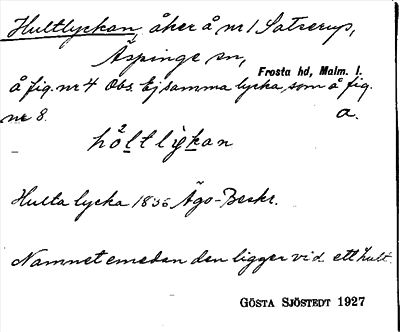 Hultlyckan, åker å nr 1 Satserup,
Äspinge sn,
Frosta hd, Malm. l.
å fig. nr 4 Obs. Ej samma lycka, som å fig.
nr 8. a.
Hulta lycka 1835 Ägo-Beskr.
Namnet emedan den ligger vid ett hult.
GÖSTA SJÖSTEDT 1927